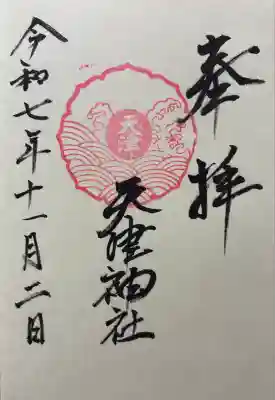 奉拝
天津神社
天津
令和七年十一月二日